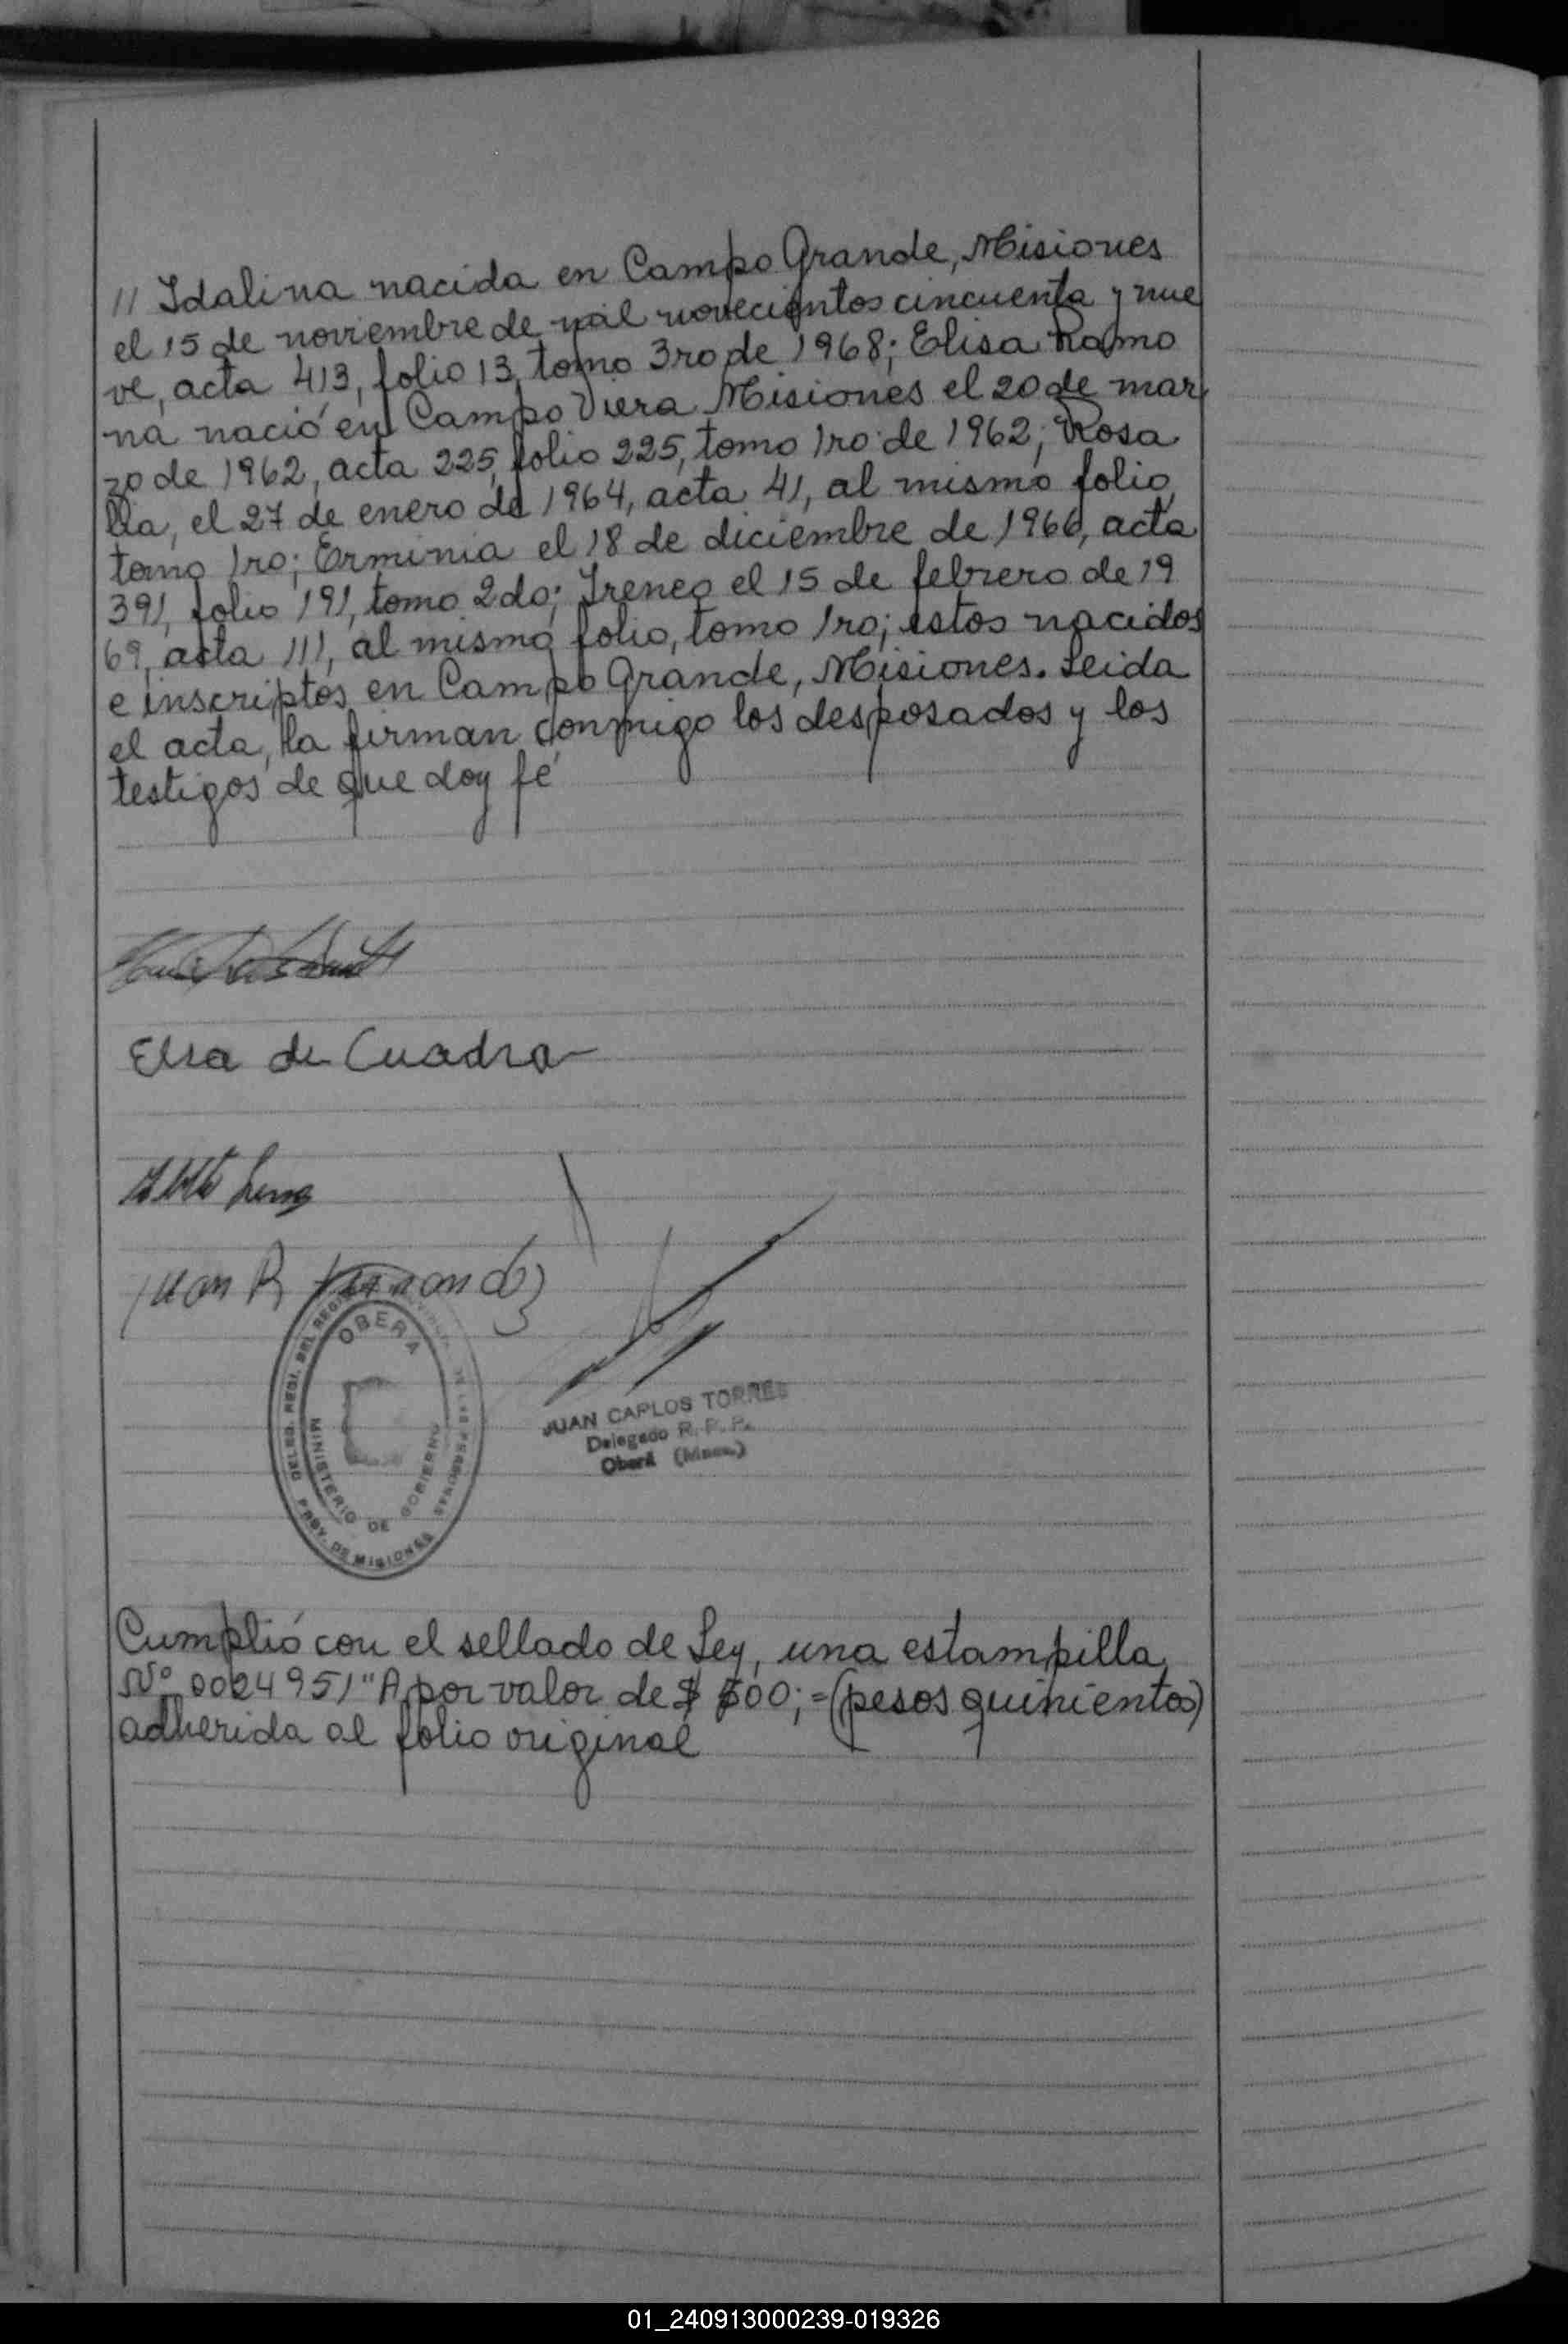 // Idalina nacida en Campo Grande, Misiones
el 15 de noviembre de mil novecientos cincuenta y nue
ve, acta 413, folio 13, tomo 3ro de 1968; Elisa Ramo
na nació en Campo Viera Misiones el 20 de mar
zo de 1962, acta 225, folio 225, tomo 1ro de 1962; Rosa
lia, el 27 de enero de 1964, acta 41, al mismo folio,
tomo 1ro; Erminia el 18 de diciembre de 1966, acta
391, folio 191, tomo 2do; Ireneo el 15 de febrero de 19
69, acta 111, al mismo folio, tomo 1ro; estos nacidos
e inscriptos en Campo Grande, Misiones. Leida
el acta, la firman conmigo los desposados y los
testigos de que doy fé
Elsa de Cuadra
Juan R Fernandez
DELEG. REGI. DEL REGISTRO PROVINCIAL DE LAS PERSONAS
OBERA
MINISTERIO DE GOBIERNO
PROV. DE MISIONES
JUAN CARLOS TORRES
Delegado R. P. P.
Oberá (Mnes.)
Cumplió con el sellado de Ley, una estampilla
Nº 0024951 "A por valor de $ 500; = (pesos quinientos)
adherida al folio original
01_240913000239-019326